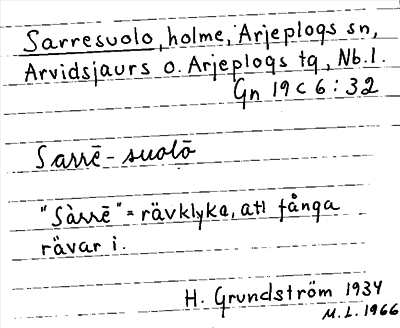 Sarresuolo, holme, Arjeplogs sn,
Arvidsjaurs o. Arjeplogs tg, Nb.l.
Gn 19 C 6:32
Sarrē-suolō
"Sàrrē" = rävklyka, att fånga
rävar i.
H. Grundström 1934
M.L. 1966